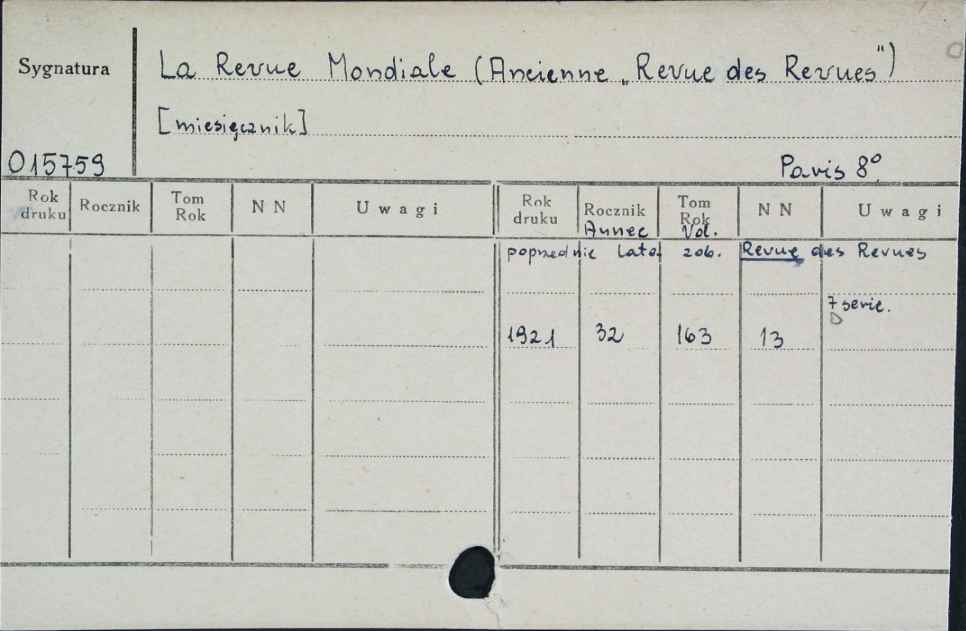 Sygnatura
La Revue Mondiale (Ancienne „Revue des Revues")
[miesięcznik]
015759
Paris 8°
Rok druku Rocznik Tom Rok NN Uwagi Rok druku Rocznik Annee Tom Rok Vol. NN Uwagi
poprzednie lata zob. Revue des Revues
7 serie.
D
1921 32 163 13